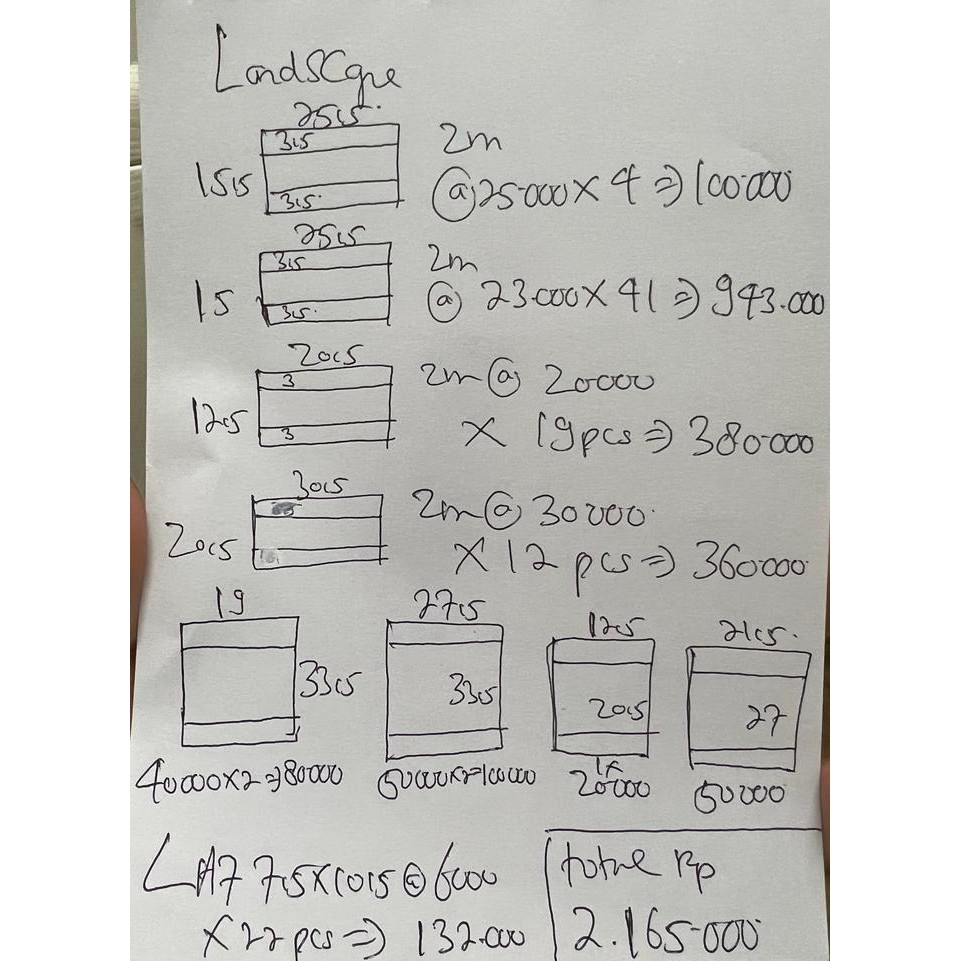 Landscape
25,5
3,5
15,5
3,5
2m
@25.000 X 4 => 100.000
25,5
3,5
15
3,5
2m
@ 23.000 X 41 => 943.000
20,5
3
12,5
3
2m @ 20000
X 19 pcs => 380.000
30,5
20,5
2m @ 30000
X 12 pcs => 360000
19
33,5
40000x2=>80000
27,5
33,5
50000x2=100000
12,5
20,5
1x
20000
21,5
27
50000
A7 7,5x10,5 @ 6000
X 22 pcs => 132.000
total Rp
2.165.000